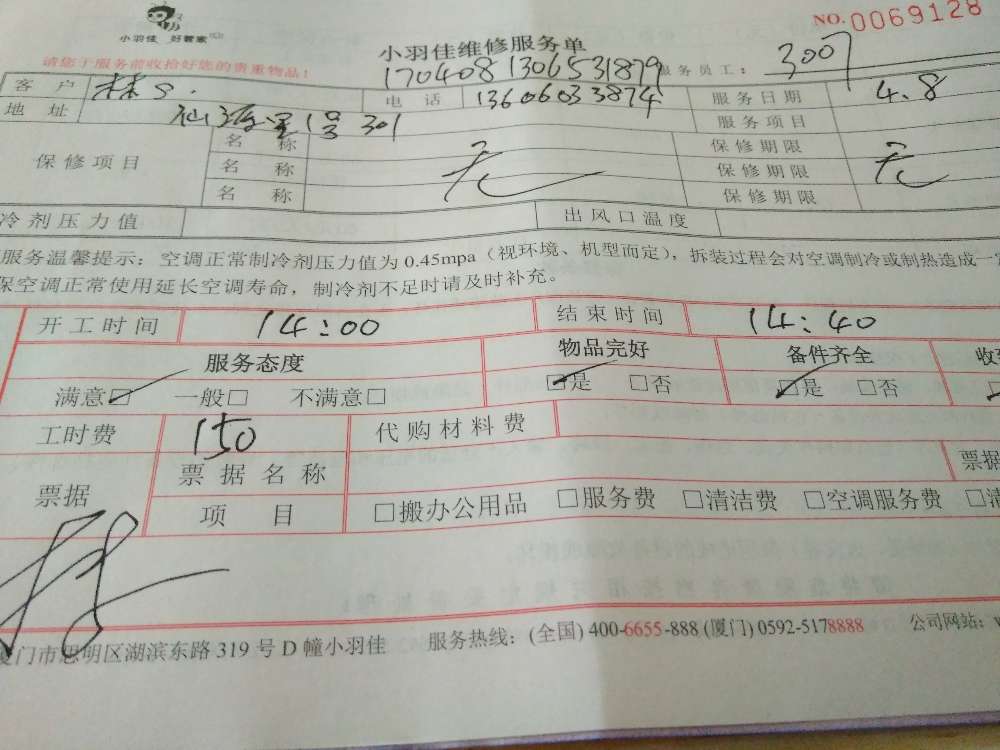 小羽佳 好管家
NO. 0069128
小羽佳维修服务单
请您于服务前收拾好您的贵重物品！
1704081306531879
服务员工： 3007
客户 林S. 电话 13606033874 服务日期 4.8
地址 1号301 服务项目
保修项目 名称 无 保修期限 无
名称 保修期限
名称 保修期限
冷剂压力值 出风口温度
服务温馨提示：空调正常制冷剂压力值为0.45mpa（视环境、机型而定），拆装过程会对空调制冷或制热造成一定
保空调正常使用延长空调寿命，制冷剂不足时请及时补充。
开工时间 14:00 结束时间 14:40
服务态度 物品完好 备件齐全
满意☑ 一般□ 不满意□ ☑是 □否 ☑是 □否
工时费 150 代购材料费
票据 票据名称 票据
项目 □搬办公用品 □服务费 □清洁费 □空调服务费
林
厦门市思明区湖滨东路319号D幢小羽佳 服务热线：(全国) 400-6655-888 (厦门) 0592-5178888 公司网站：